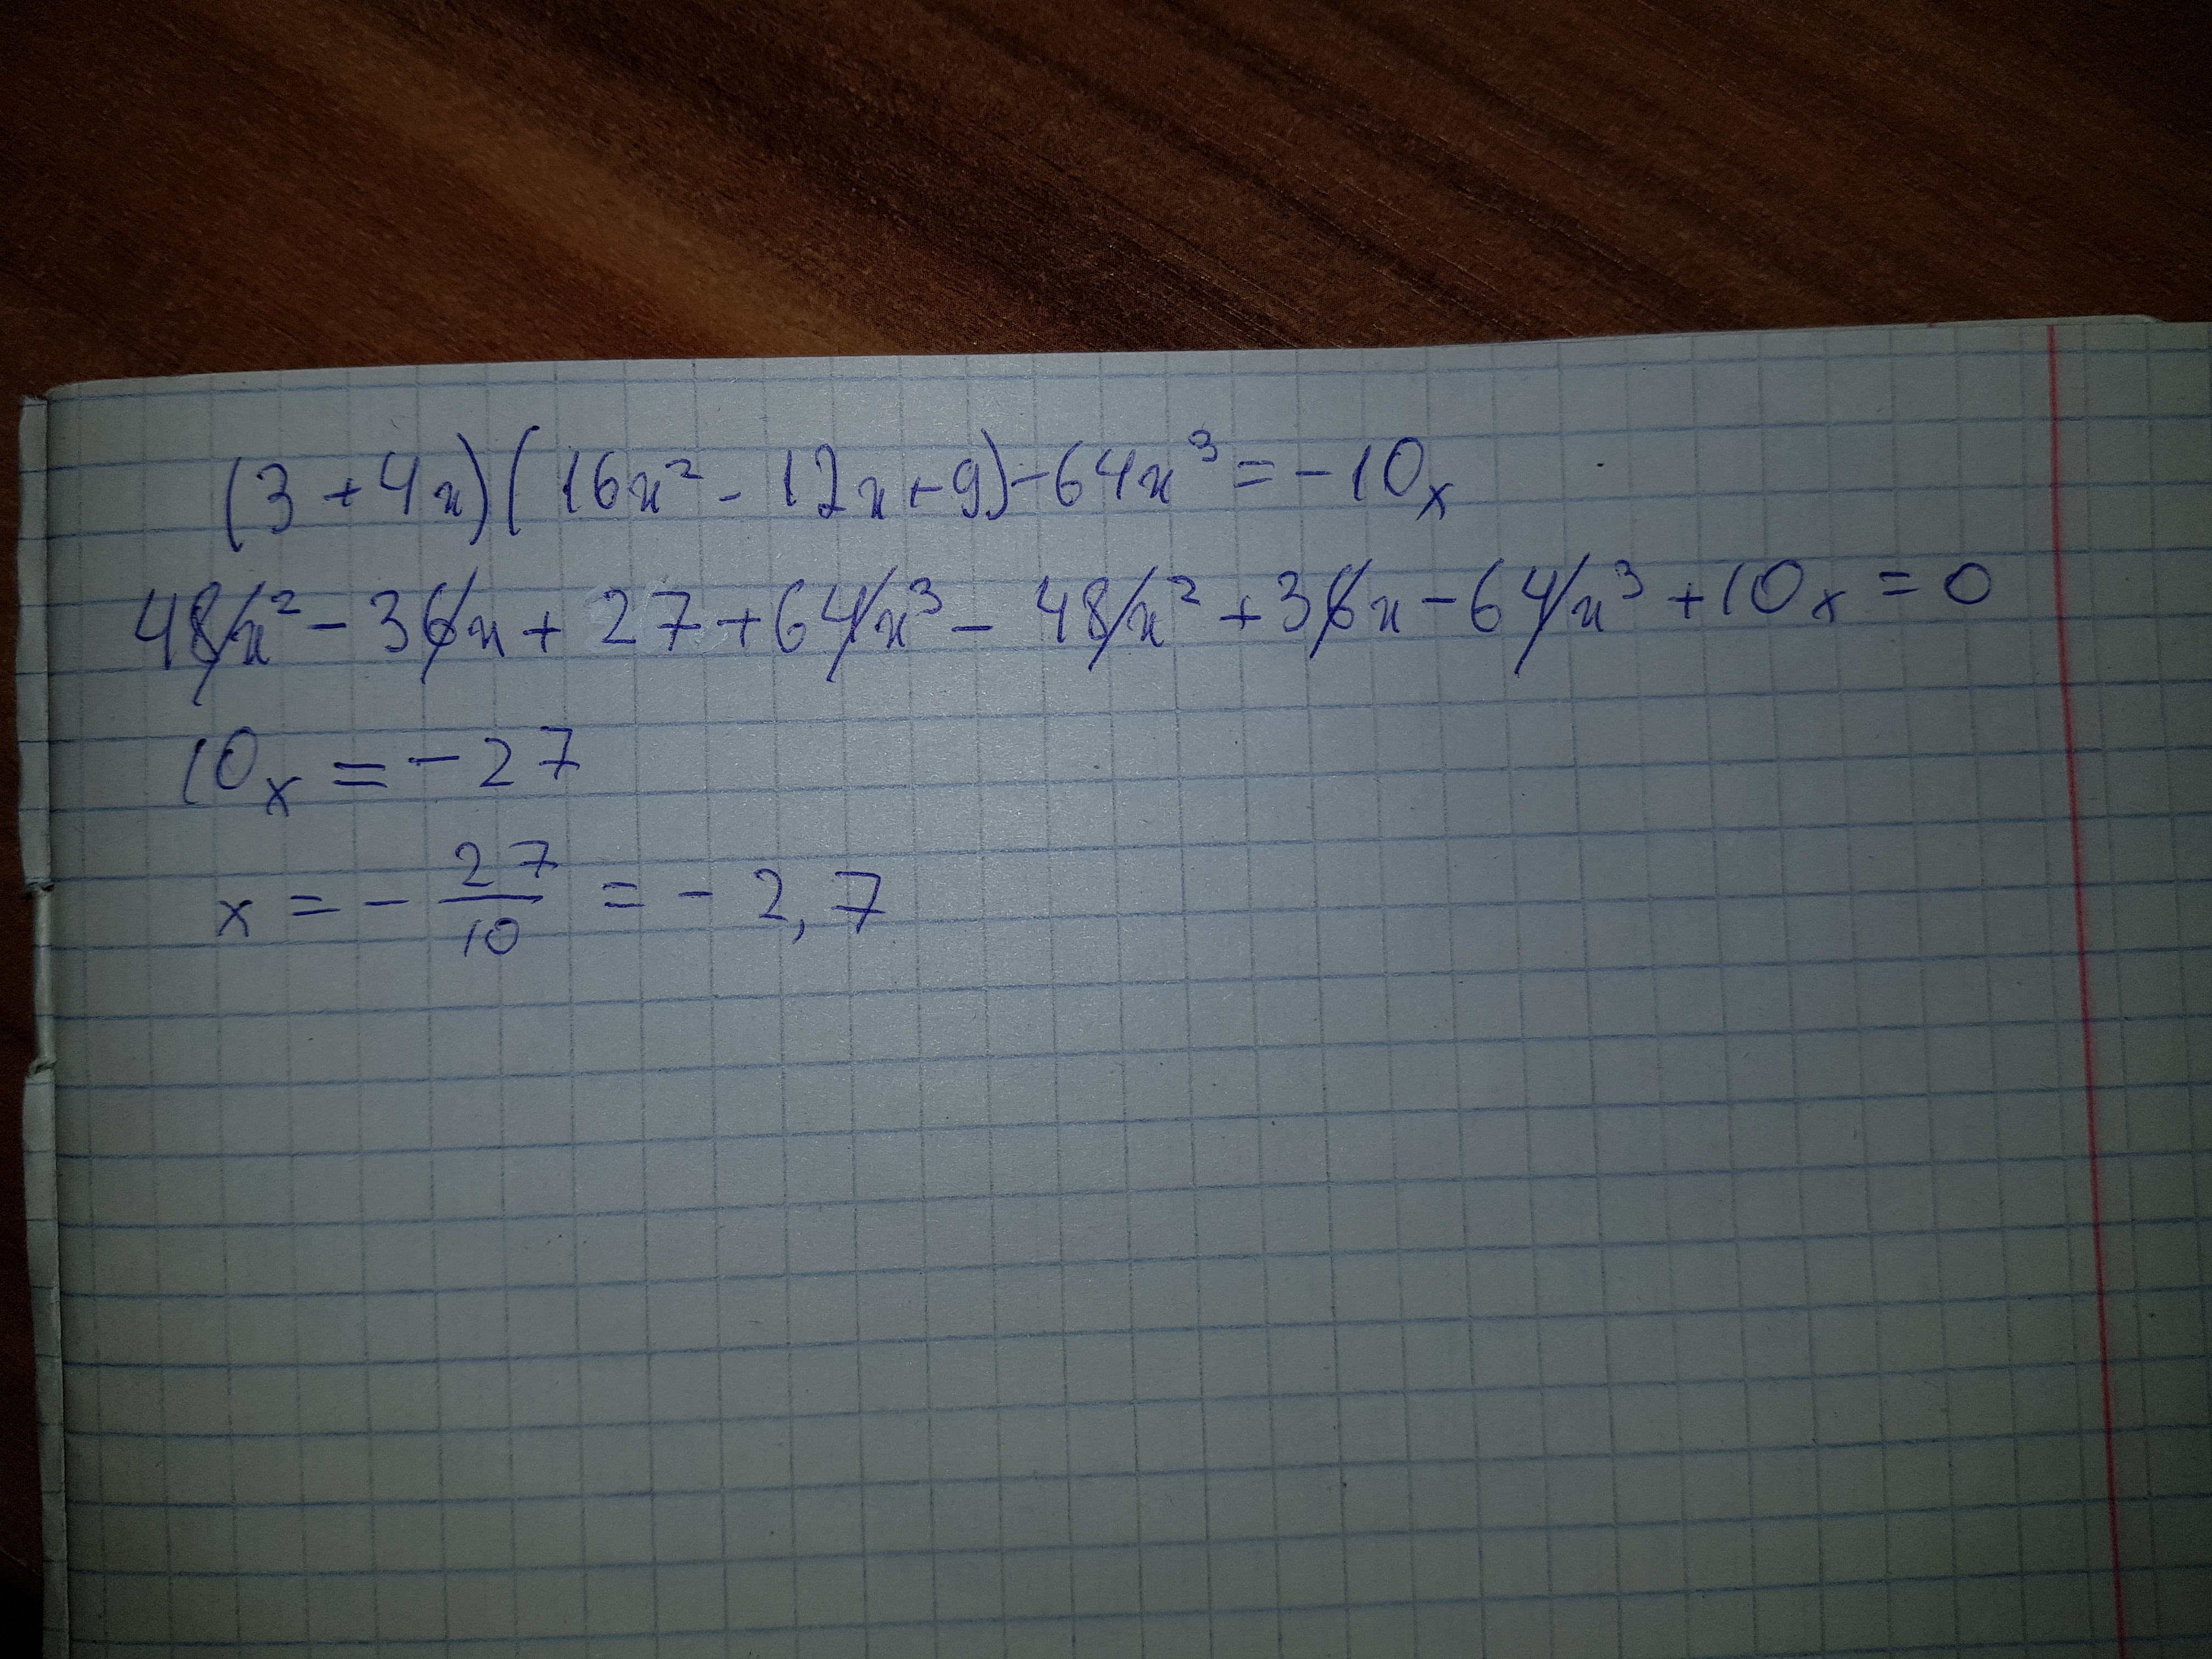 (3 + 4x)(16x² - 12x + 9) - 64x³ = -10x
48x² - 36x + 27 + 64x³ - 48x² + 36x - 64x³ + 10x = 0
10x = -27
x = - 27/10 = - 2,7